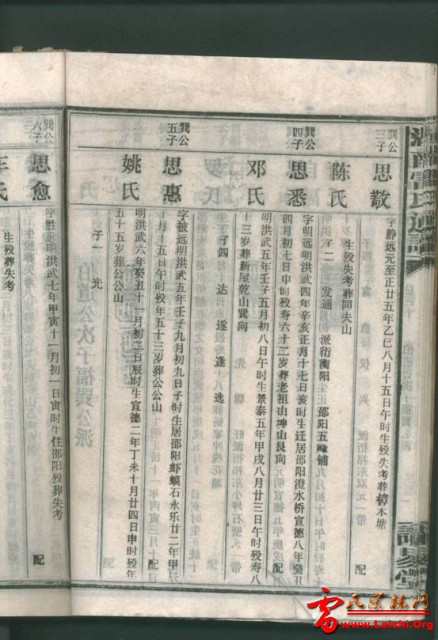 巽公三子
思敬
字静远元至正廿五年乙巳八月十五日午时生殁失考葬樟木塘
配
陈氏
生殁失考葬同夫山
子二 发通 派衍衡阳 邵阳五峰铺
巽公四子
思悉
字明远明洪武四年辛亥正月十七日亥时生迁居邵阳澄水桥宣德八年癸丑
四月初七日申时殁寿六十三岁葬老祖山坤山艮向
配
邓氏
明洪武五年壬子五月初八日午时生景泰五年甲戌八月廿三日午时殁寿八
十三岁葬新屋乾山巽向
子四 达 遂 逢 逸
巽公五子
思惠
字被远明洪武五年壬子九月初九日子时生居邵阳虾蟆石永乐廿二年甲辰
月十五日午时殁年五十三岁葬公公山
配
姚氏
明洪武六年癸丑十一月初二日辰时生宣德二年丁未十月廿四日申时殁年
五十五岁葬公公山
子一 光
巽公六子
思愈
字胜远明洪武七年甲寅十一月初一日寅时生住邵阳殁葬失考
配
生殁葬失考
雷氏宗亲网
www.Leishi.Org